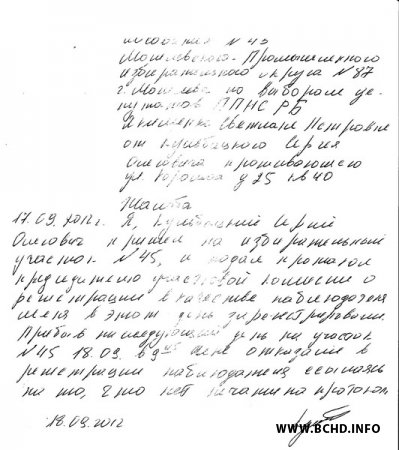 участка N 45
Могилевского-Промышленного
избирательного округа N 87
г. Могилева по выборам де-
путатов ППНС РБ
Якименко Светлане Петровне
от Кульбацкого Сергея
Олеговича проживающего
ул. д 25 кв 40
Жалоба
17.09.2012г. Я, Кульбацкий Сергей
Олегович пришел на избирательный
участок N 45, и подал протокол
председателю участковой комиссии о
регистрации в качестве наблюдателя
меня в этот день зарегистрировали.
Прибыв на следующий день на участок
N45 18.09. в 9 мне отказали в
регистрации наблюдателя ссылаясь
на то, что нет печати на протоколе
18.09.2012
WWW.BCHD.INFO